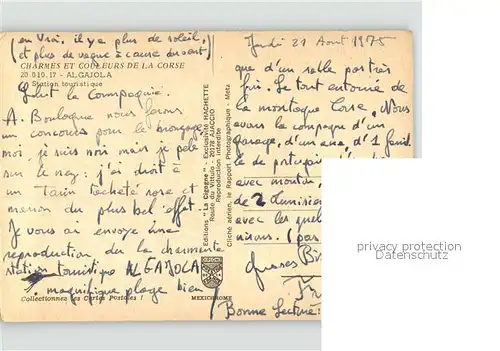 (en vrai, il y a plus de soleil,
et plus de vague à cause du vent)
CHARMES ET COULEURS DE LA CORSE
20.010.17 - ALGAJOLA
Station touristique
Salut la Compagnie.
A Boulogne nous ferons
un concours pour le bronzage
moi, je suis noir mais je pèle
sur le nez: j'ai droit à
un Tarin tacheté rose et
marron du plus bel effet.
Je vous ai envoyé une
reproduction de la charmante
station touristique ALGAJOLA
magnifique plage bien
Collectionnez les Cartes Postales !
MEXICHROME
Editions "La Cigogne" - Exclusivité HACHETTE
Route du Vittulo - 20120 AJACCIO
Reproduction interdite
Cliché aérien, le Rapport Photographique - Meta
Jeudi 21 Aout 1975
que d'un sable pas très
fin. Le tout entouré de
la montagne Corse. Nous
avons la compagnie d'un
garage, d'un ane, d'1
de
avec mouton,
de 2
avec les quel
(pas
Grosses Bi
Bonne Lecture:
privacy protection
Datenschutz